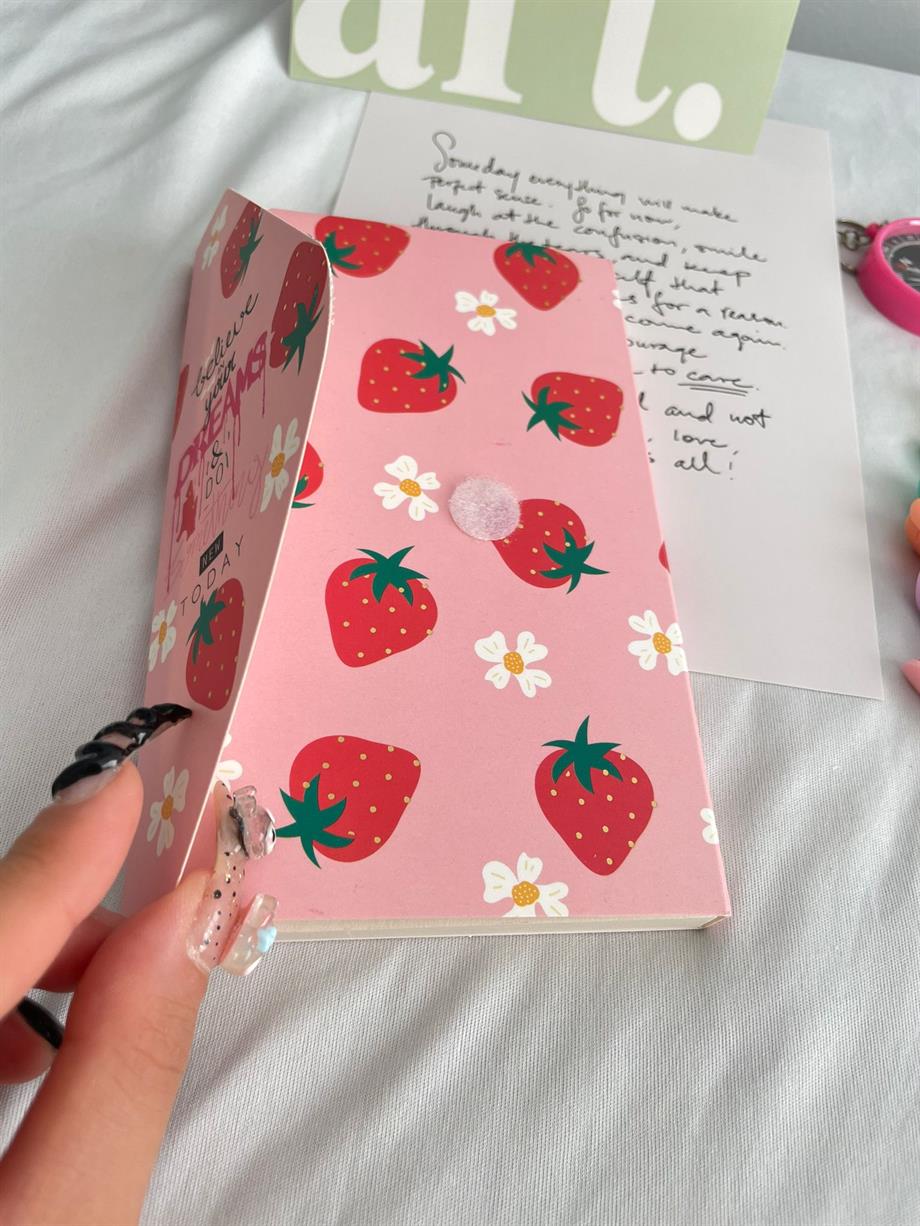 art.
Someday everything will make
perfect sense. So for now,
laugh at the confusion, smile
through the tears and keep
self that
is for a reason
come again.
ourage
to care.
and not
love
all!
believe
your
DREAMS
&
DO
NEW
TODAY